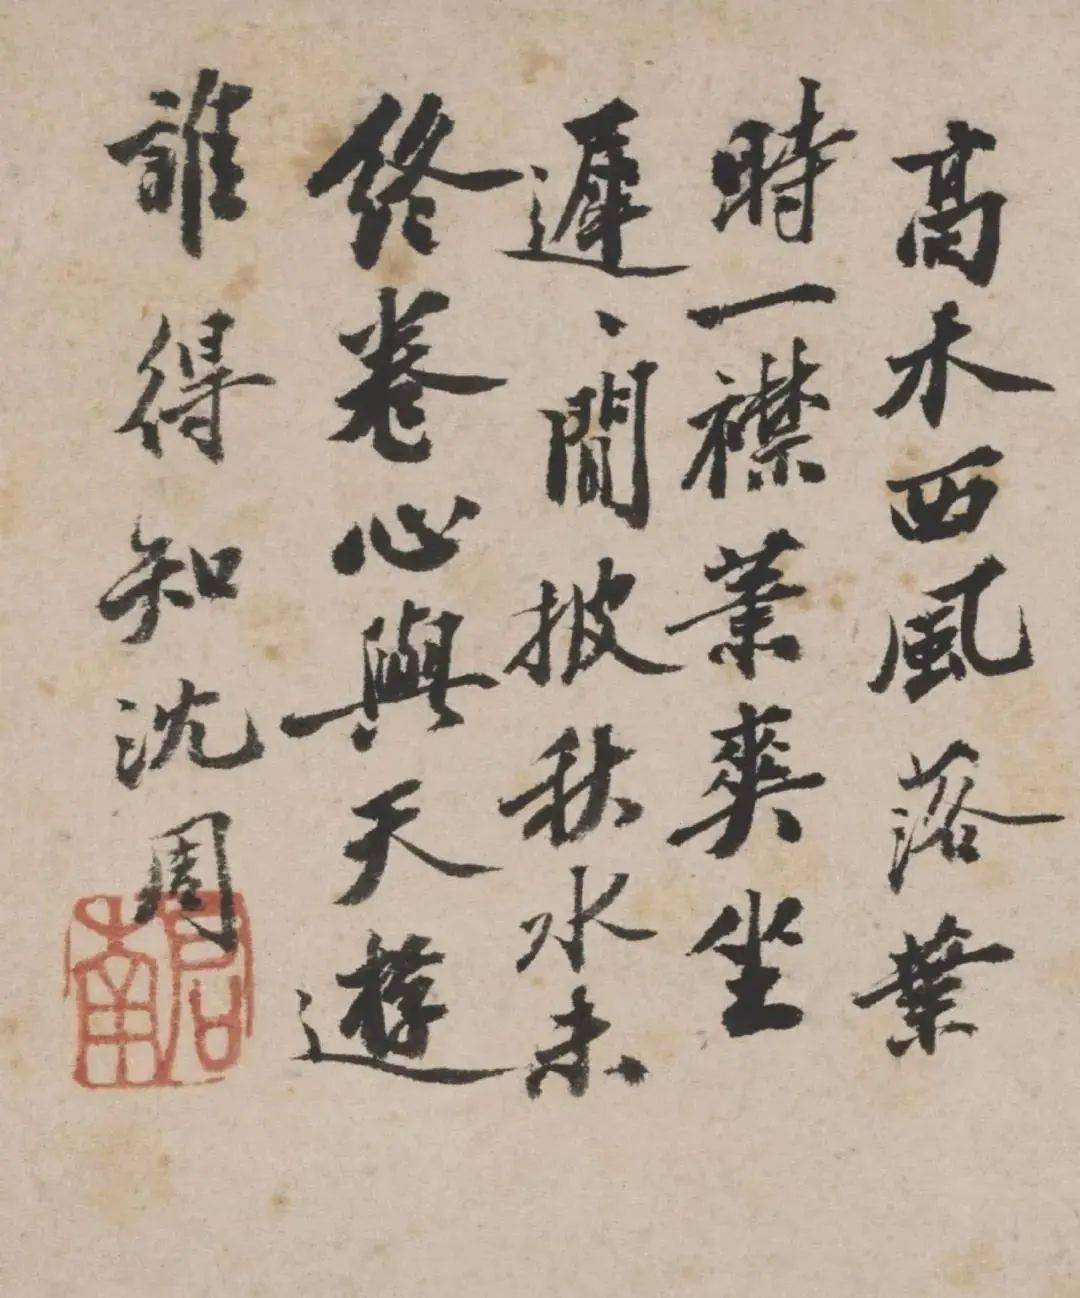 高木西風落葉
時一襟蕭爽坐
遲、間披秋水未
終卷心與天遊
誰得知沈周
启南